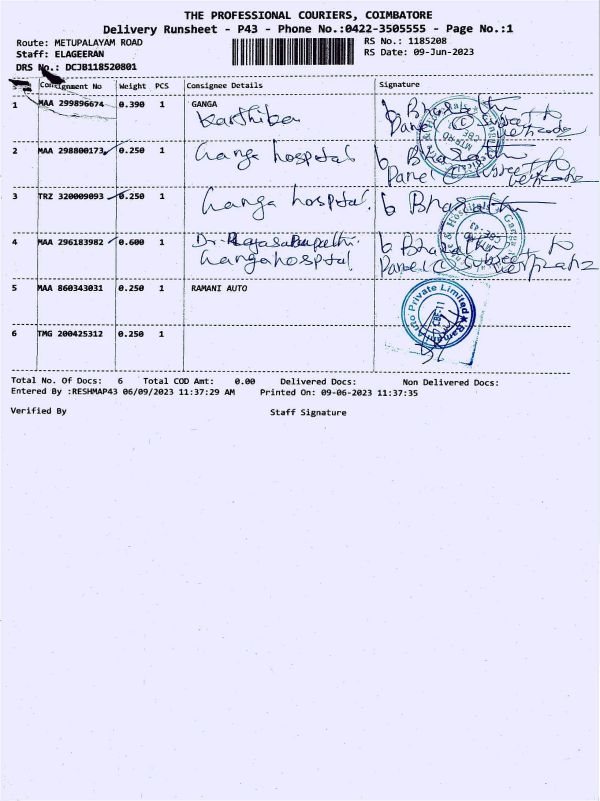 THE PROFESSIONAL COURIERS, COIMBATORE
Delivery Runsheet - P43 - Phone No.:0422-3505555 - Page No.:1
Route: METUPALAYAM ROAD
RS No.: 1185208
Staff: ELAGEERAN
RS Date: 09-Jun-2023
DRS No.: DCJB118520801
Consignment No Weight PCS Consignee Details Signature
1 MAA 299896674 0.390 1 GANGA
Karthika
2 MAA 298800173 0.250 1 Ganga hospetal
3 TRZ 320009093 0.250 1 Ganga hospetal.
4 MAA 296183982 0.600 1 Dr.
Ganga hospital
5 MAA 860343031 0.250 1 RAMANI AUTO
Private Limited
6 TMG 200425312 0.250 1
Total No. Of Docs: 6 Total COD Amt: 0.00 Delivered Docs: Non Delivered Docs:
Entered By :RESHMAP43 06/09/2023 11:37:29 AM Printed On: 09-06-2023 11:37:35
Verified By Staff Signature